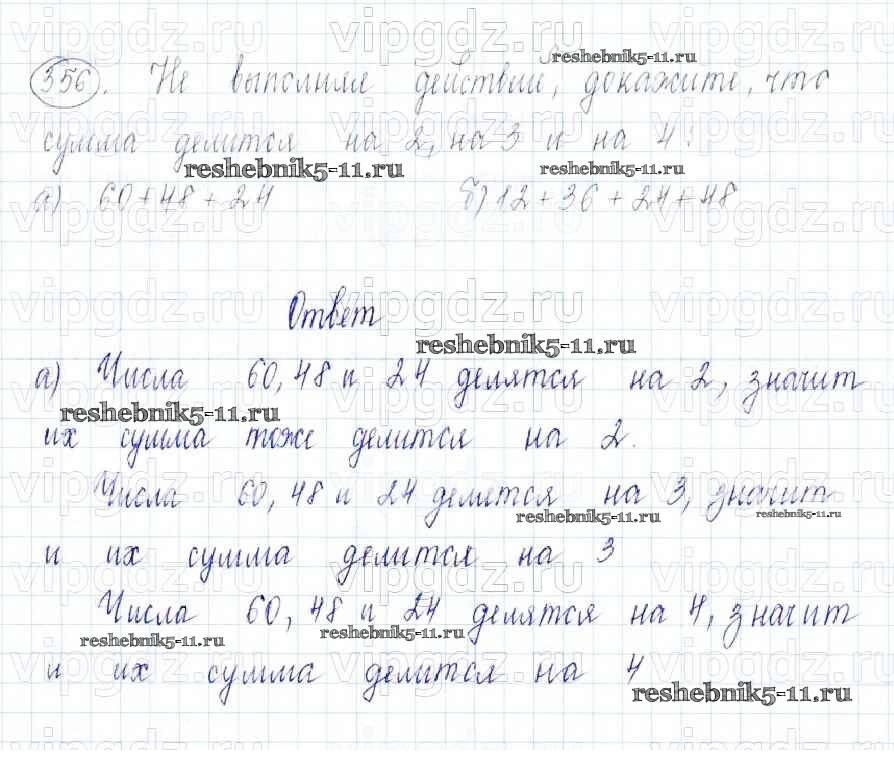 356. Не выполняя действий, докажите, что
reshebnik5-11.ru
сумма делится на 2, на 3 и на 4:
reshebnik5-11.ru reshebnik5-11.ru
а) 60+48+24 б) 12+36+24+48
Ответ
reshebnik5-11.ru
а) Числа 60, 48 и 24 делятся на 2, значит
reshebnik5-11.ru
их сумма тоже делится на 2.
Числа 60, 48 и 24 делятся на 3, значит
reshebnik5-11.ru reshebnik5-11.ru
и их сумма делится на 3
Числа 60, 48 и 24 делятся на 4, значит
reshebnik5-11.ru reshebnik5-11.ru
и их сумма делится на 4
reshebnik5-11.ru